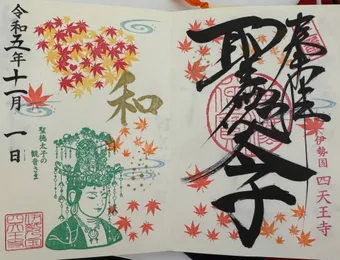 奉拝
聖徳太子
伊勢国 四天王寺
令和五年十一月一日
和
聖徳太子の
観音さま